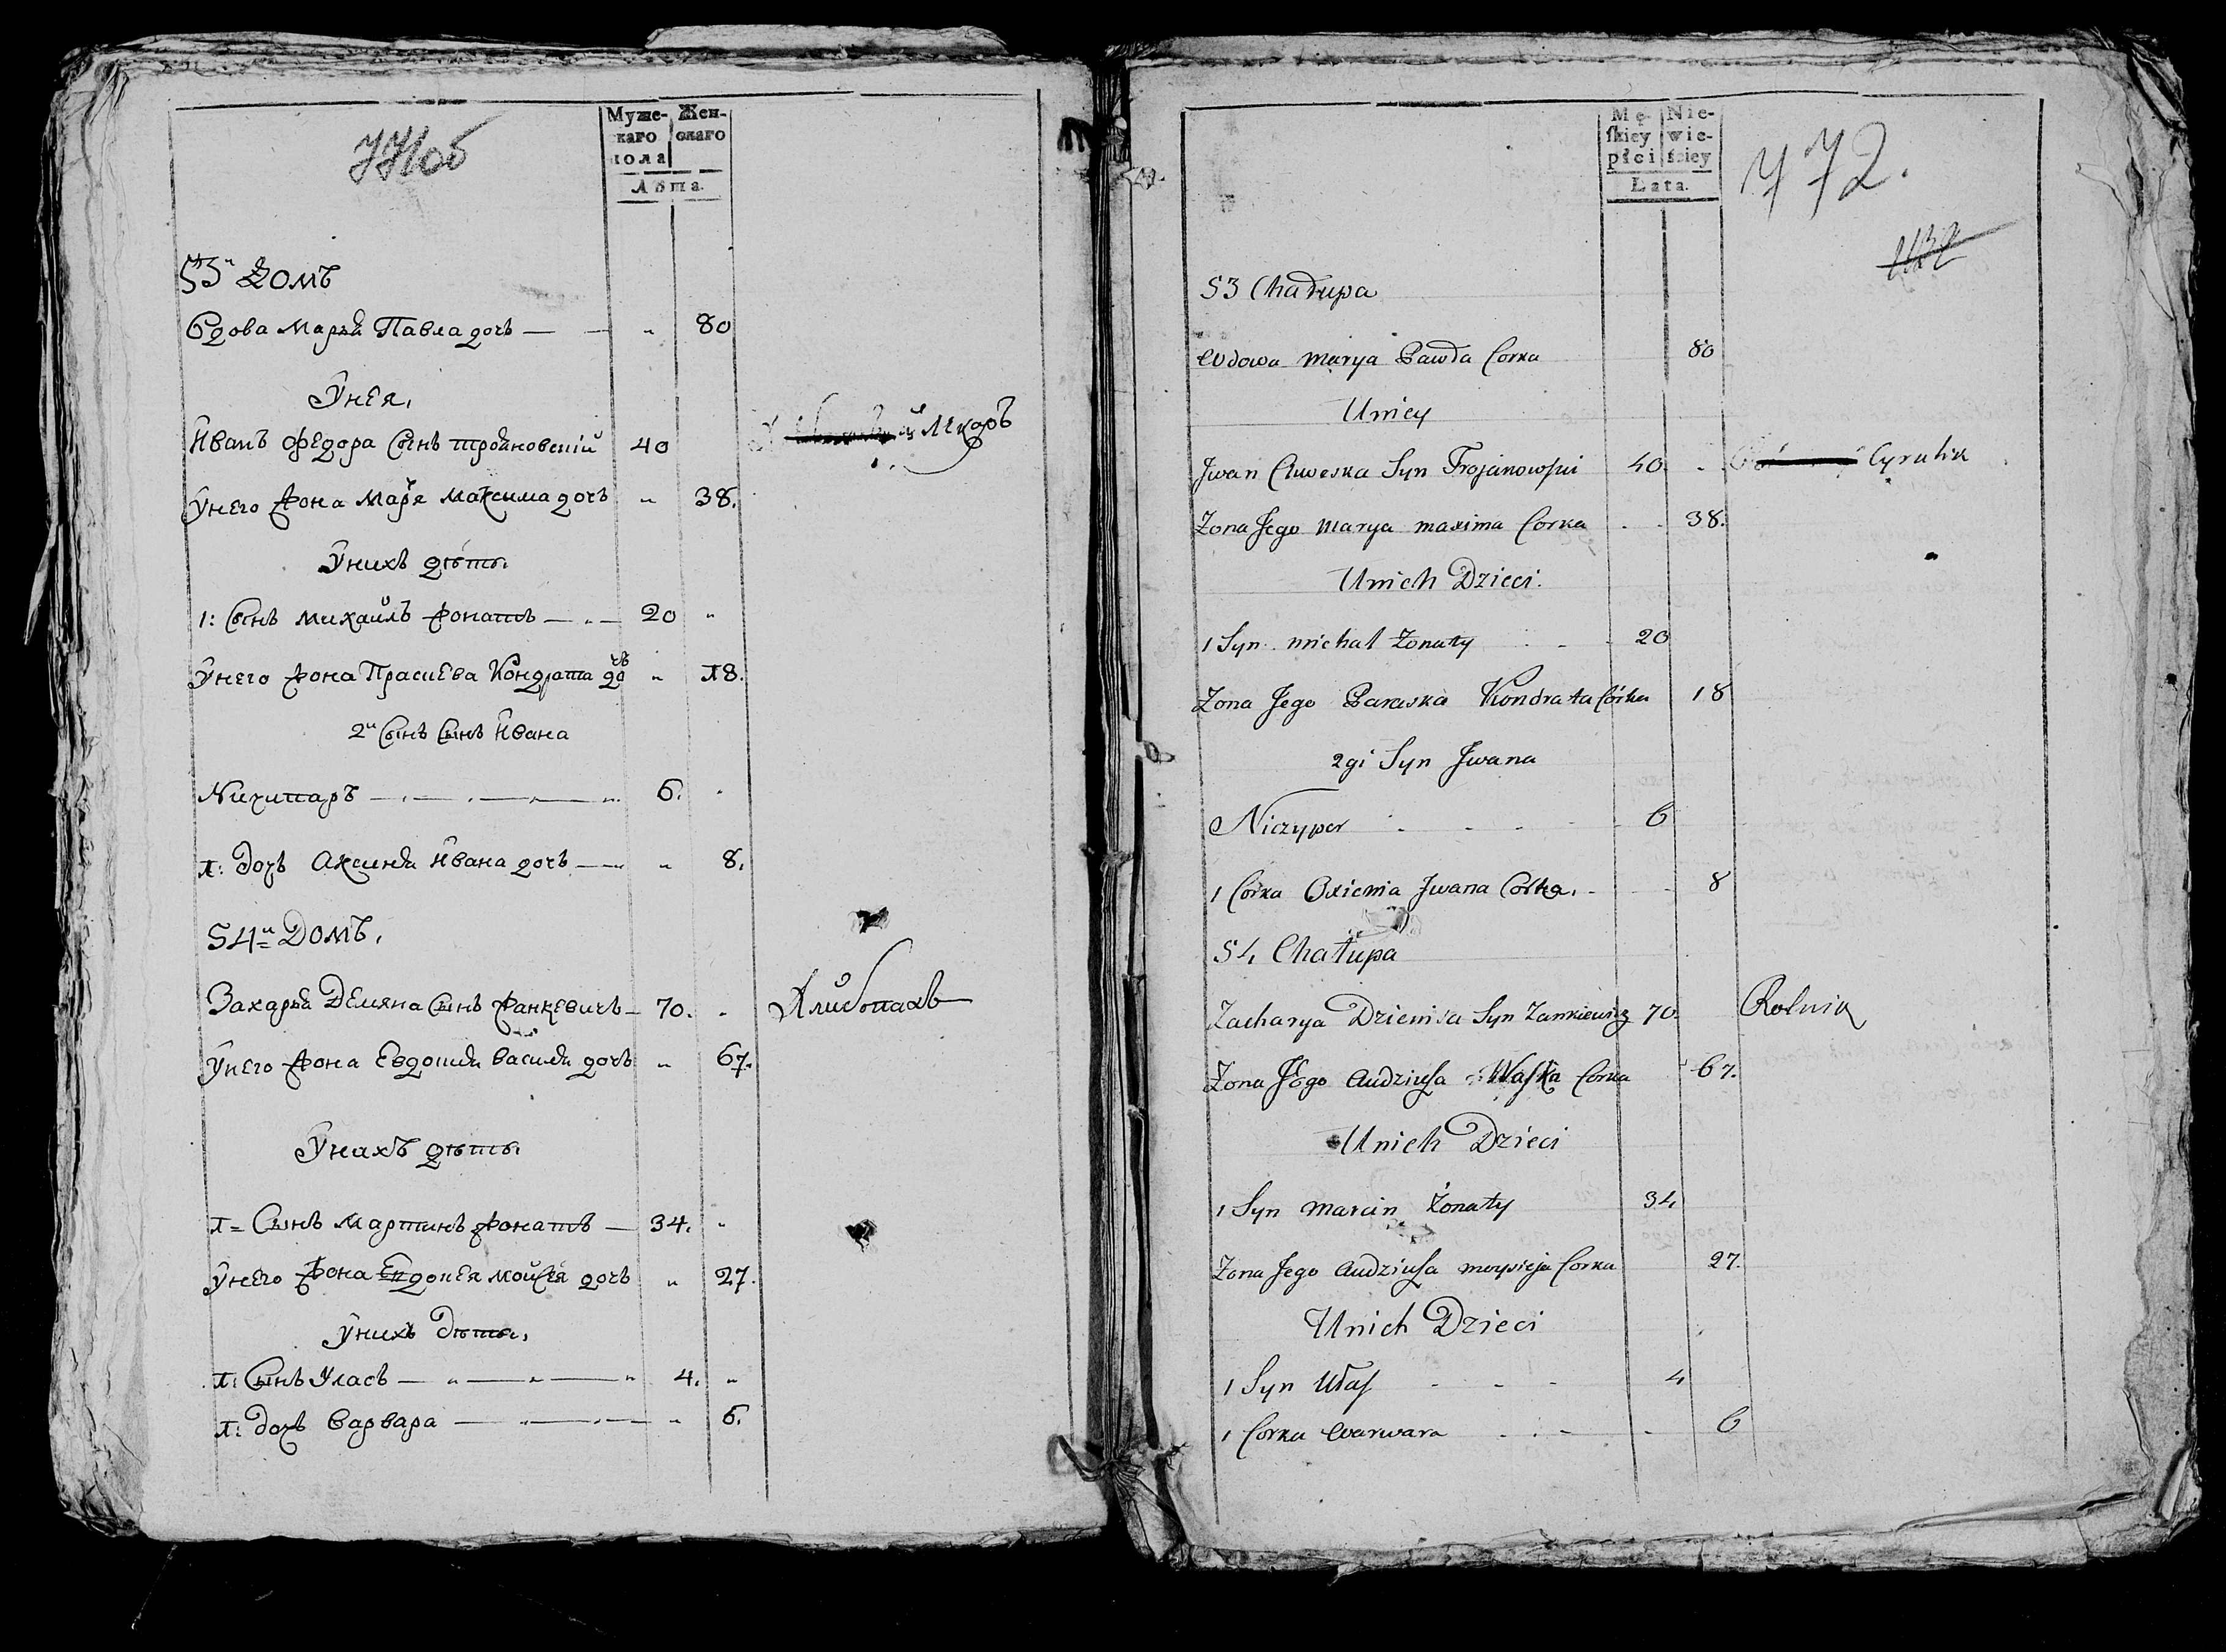 771 об
Муже-
скаго
пола
Жен-
скаго
Лѣта.
53й Домъ
Вдова Марья Павла дочь — — „ 80
У нея,
Иванъ Федора Сынъ Трояновскiй 40
Лекаръ
У него жона Марья Максима дочъ „ 38.
У нихъ дѣти.
1: Сынъ Михаилъ жонатъ — „ — 20 „
У него жона Прасцева Кондрата дочъ „ 18.
2й Сынъ Сынъ Ивана
Ничипаръ — 6.
1: дочь Аксиня Ивана дочъ — „ 8.
54й Домъ.
Захарья Демяна Сынъ Жанкевичъ — 70. „
Хлибопахъ
У него жона Евдошя Василя дочъ „ 67.
У нихъ дѣти
1= Сынъ Мартинъ жонатъ — 34. „
У него жона Евдокея Мойсея дочъ „ 27.
У нихъ Дѣти.
1: Сынъ Уласъ — „ — „ — „ 4. „
1: дочь Варвара — „ 6.
Mę-
skiey
płci
Nie-
wie-
ściey
Lata.
772.
53 Chałupa
Wdowa Marya Pawła Corka 80
U niey
Jwan Chweska Syn Trojanowski 40.
Cyrulik
Zona Jego Marya Maxima Corka 38.
U nich Dzieci.
1 Syn Michał Żonaty 20
Zona Jego Paraska Kondrata Córka 18
2gi Syn Jwana
Niczypor 6
1 Córka Oxienia Jwana Córka. 8
54 Chałupa
Zacharya Dziemja Syn Zankiewicz 70.
Rolnik
Zona Jego Audziusa Waska Corka 67.
U nich Dzieci
1 Syn Marcin Żonaty 34
Zona Jego Audziusa Moysieja Corka 27.
U nich Dzieci
1 Syn Ułas 4
1 Corka Warwara 6